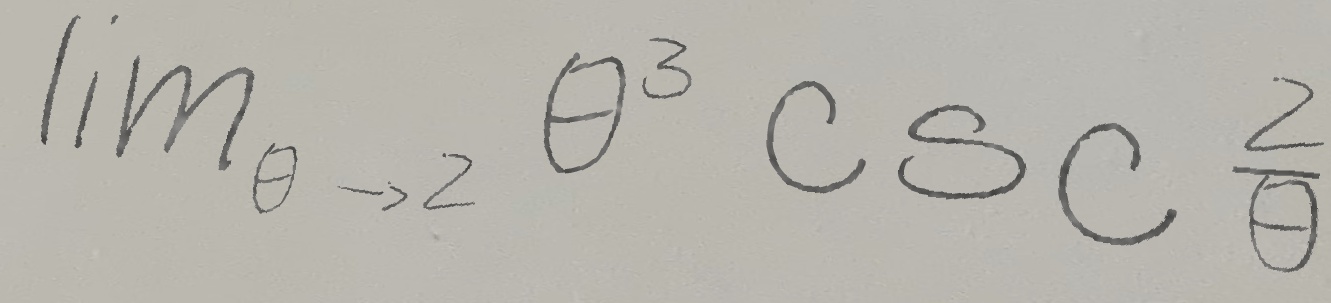 lim θ→2 θ³ csc 2/θ